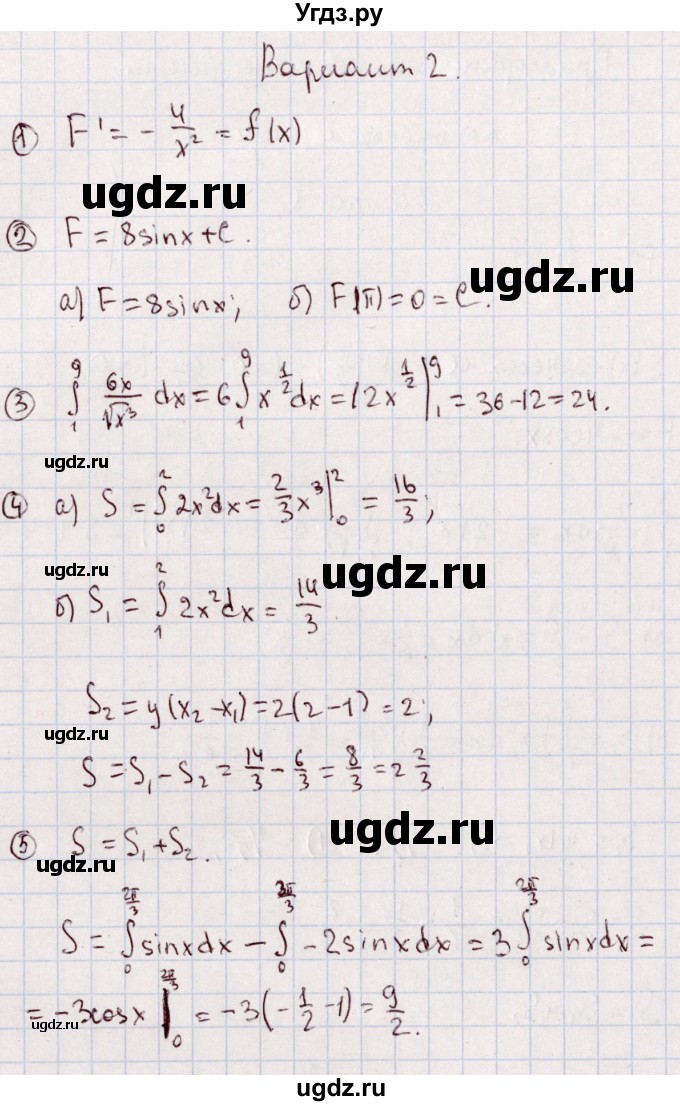 Угдз.ру
Вариант 2.
① F' = - 4/x² = f(x)
ugdz.ru
② F = 8sinx + C.
ugdz.ru
а) F = 8sinx; б) F(π) = 0 = C.
③ ∫₁⁹ 6x/√x³ dx = 6∫₁⁹ x^(1/2) dx = 12x^(1/2) |₁⁹ = 36 - 12 = 24.
ugdz.ru
④ а) S = ∫₀² 2x²dx = 2/3 x³ |₀² = 16/3;
ugdz.ru
ugdz.ru
б) S₁ = ∫₁² 2x²dx = 14/3
S₂ = y(x₂ - x₁) = 2(2 - 1) = 2;
ugdz.ru
S = S₁ - S₂ = 14/3 - 6/3 = 8/3 = 2 2/3.
ugdz.ru
⑤ S = S₁ + S₂.
ugdz.ru
S = ∫₀^(2π/3) sinxdx - ∫₀^(2π/3) - 2sinxdx = 3∫₀^(2π/3) sinxdx =
= -3cosx |₀^(2π/3) = -3(-1/2 - 1) = 9/2.
ugdz.ru
ugdz.ru
ugdz.ru